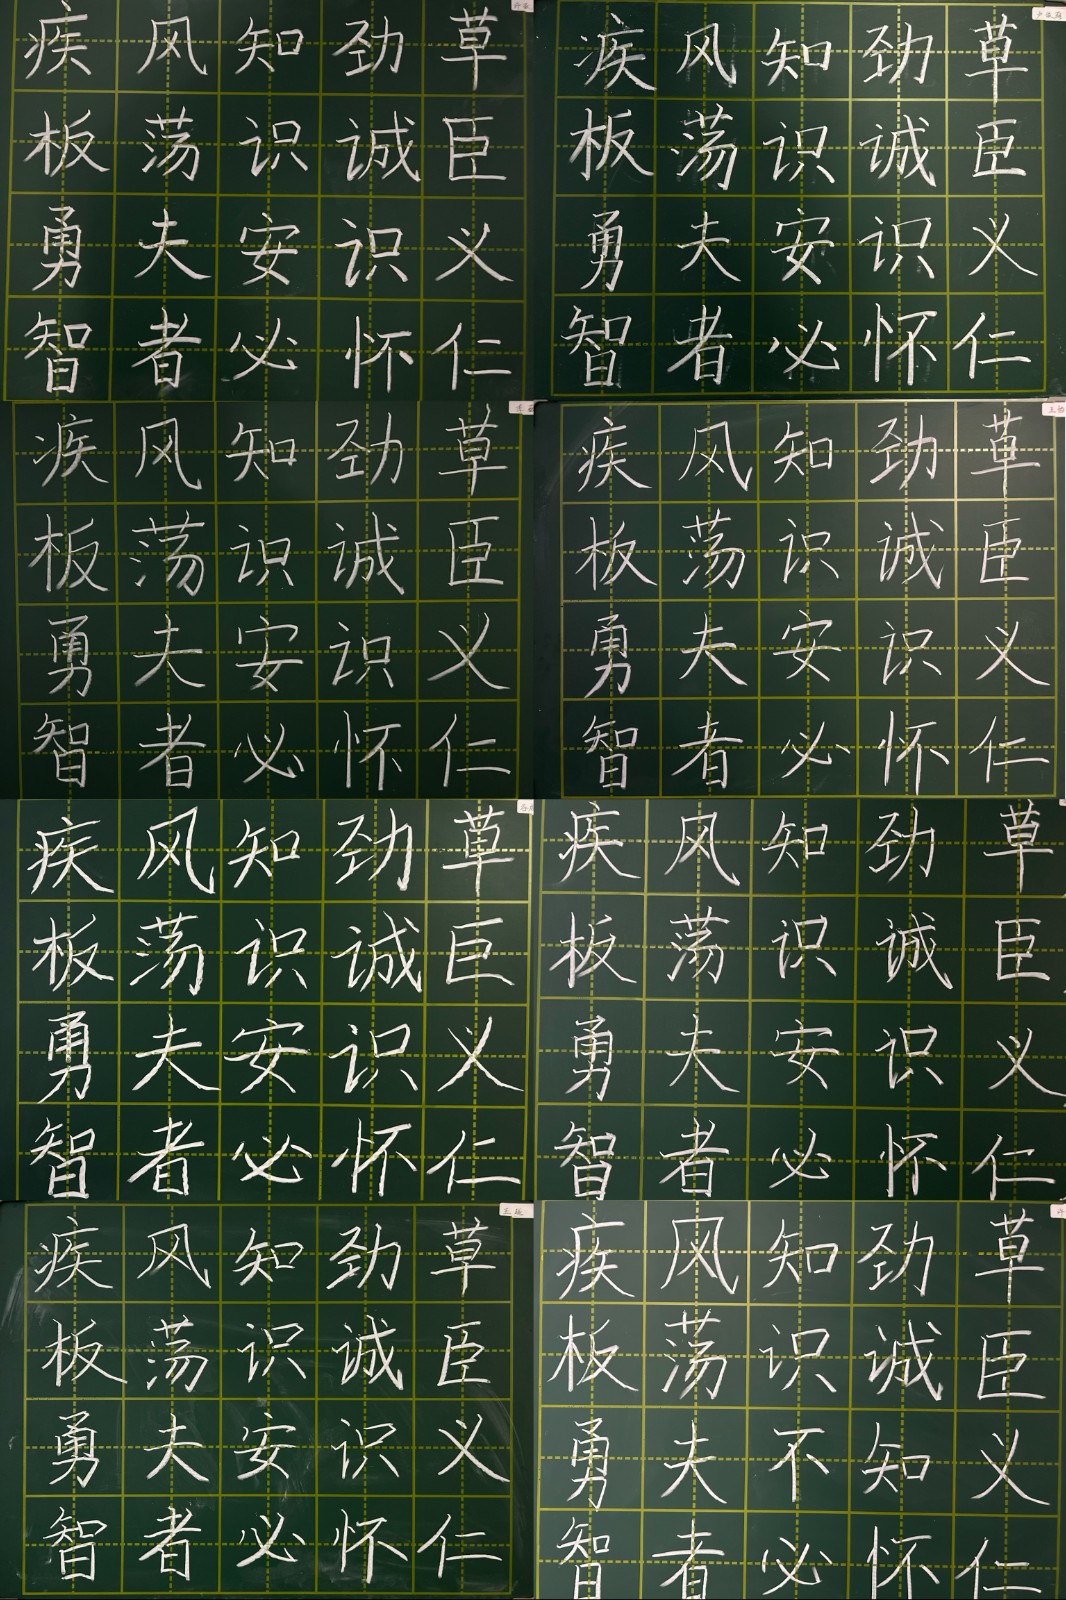 疾风知劲草
板荡识诚臣
勇夫安识义
智者必怀仁
疾风知劲草
板荡识诚臣
勇夫安识义
智者必怀仁
疾风知劲草
板荡识诚臣
勇夫安识义
智者必怀仁
疾风知劲草
板荡识诚臣
勇夫安识义
智者必怀仁
疾风知劲草
板荡识诚巨
勇夫安识义
智者必怀仁
疾风知劲草
板荡识诚臣
勇夫安识义
智者必怀仁
疾风知劲草
板荡识诚臣
勇夫安识义
智者必怀仁
疾风知劲草
板荡识诚臣
勇夫不知义
智者必怀仁